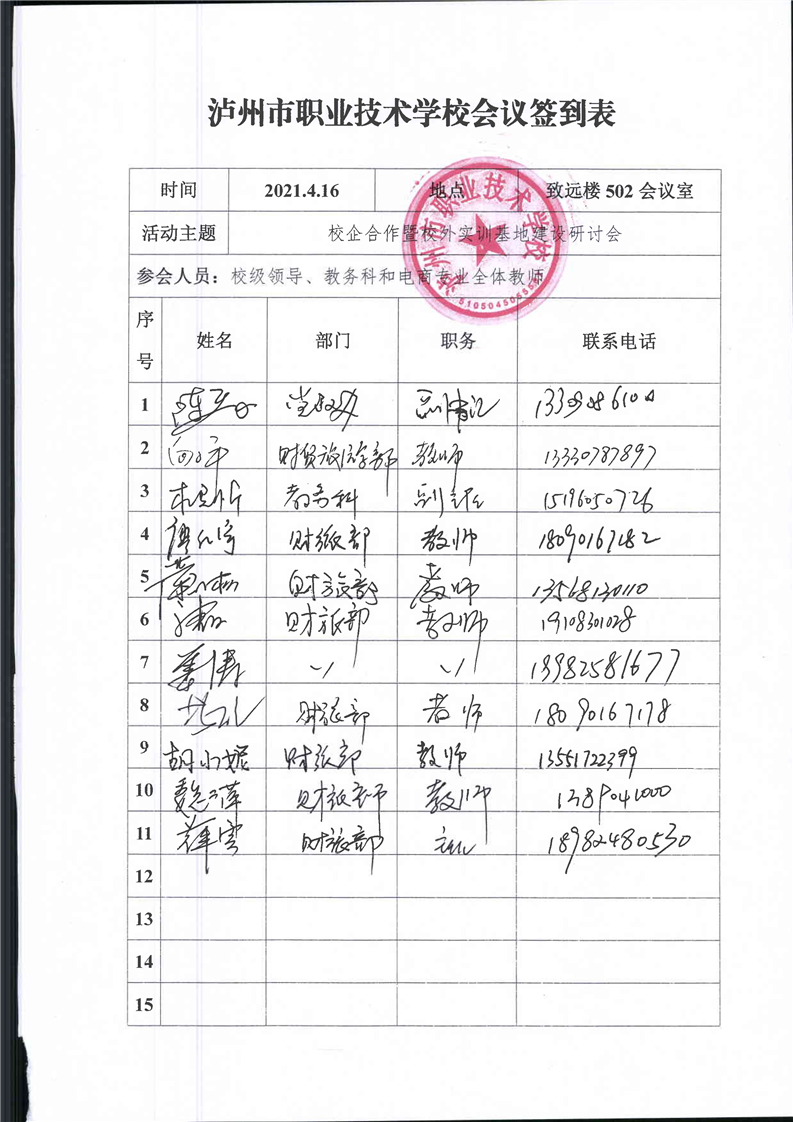 泸州市职业技术学校会议签到表
时间 2021.4.16 地点 致远楼 502 会议室
活动主题 校企合作暨校外实训基地建设研讨会
参会人员：校级领导、教务科和电商专业全体教师
泸州市职业技术学校
序号 姓名 部门 职务 联系电话
1 党政办 副书记
2 财贸旅游学部 教师 13330787897
3 教务科 15196050726
4 财旅部 教师 18090167282
5 财旅部 教师 13568130110
6 财旅部 教师 19108301028
7 姜涛 〃 〃 13982581677
8 财旅部 教师 18090167178
9 胡小妮 财旅部 教师 13551722399
10 魏 萍 财旅 教师
11 薛雪 财旅部 18982480530
12
13
14
15